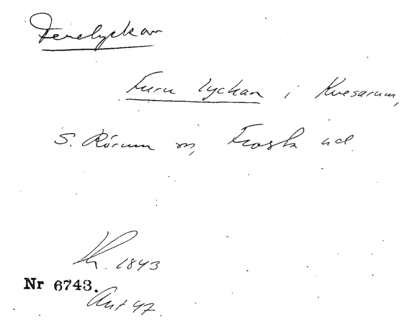 Furelyckan
Furu lyckan i Kvesarum,
S. Rörum sn, Frosta hd.
Kh. 1843
Nr 6743.
Ant 47.